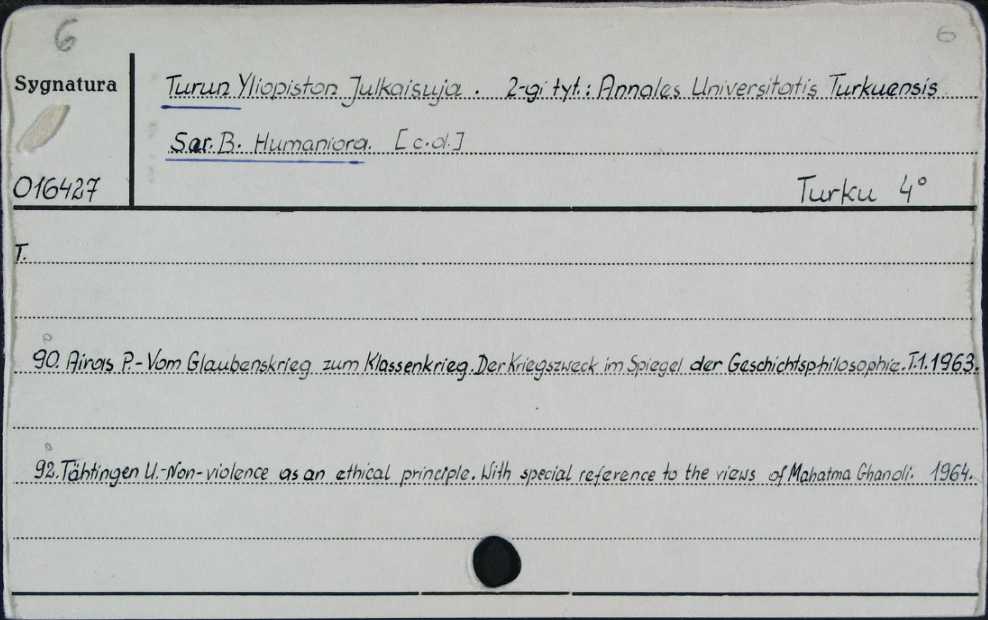 6 6
Sygnatura
Turun Yliopiston Julkaisuja. 2-gi tyt.: Annales Universitatis Turkuensis
Sar. B. Humaniora. [c.d.]
016427
Turku 4°
T.
90. Airas P.- Vom Glaubenskrieg zum Klassenkrieg. Der Kriegszweck im Spiegel der Geschichtsphilosophie. T.1. 1963.
92. Tähtingen U.- Non-violence as an ethical principle. With special reference to the views of Mahatma Ghandi. 1964.